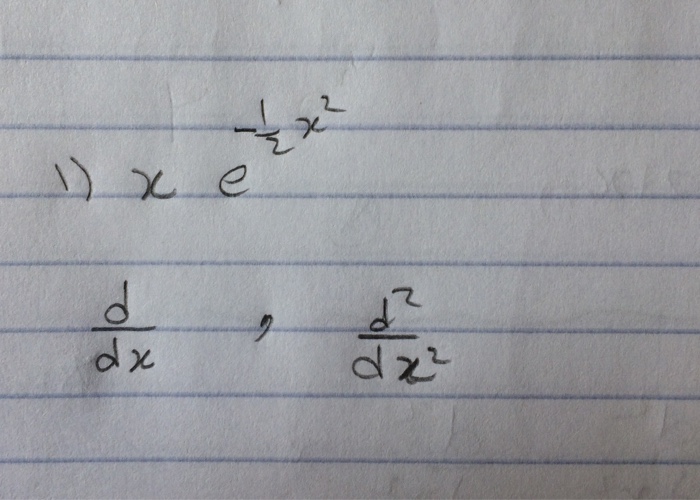 1) x e^{-\frac{1}{2}x^2}
\frac{d}{dx} , \frac{d^2}{dx^2}